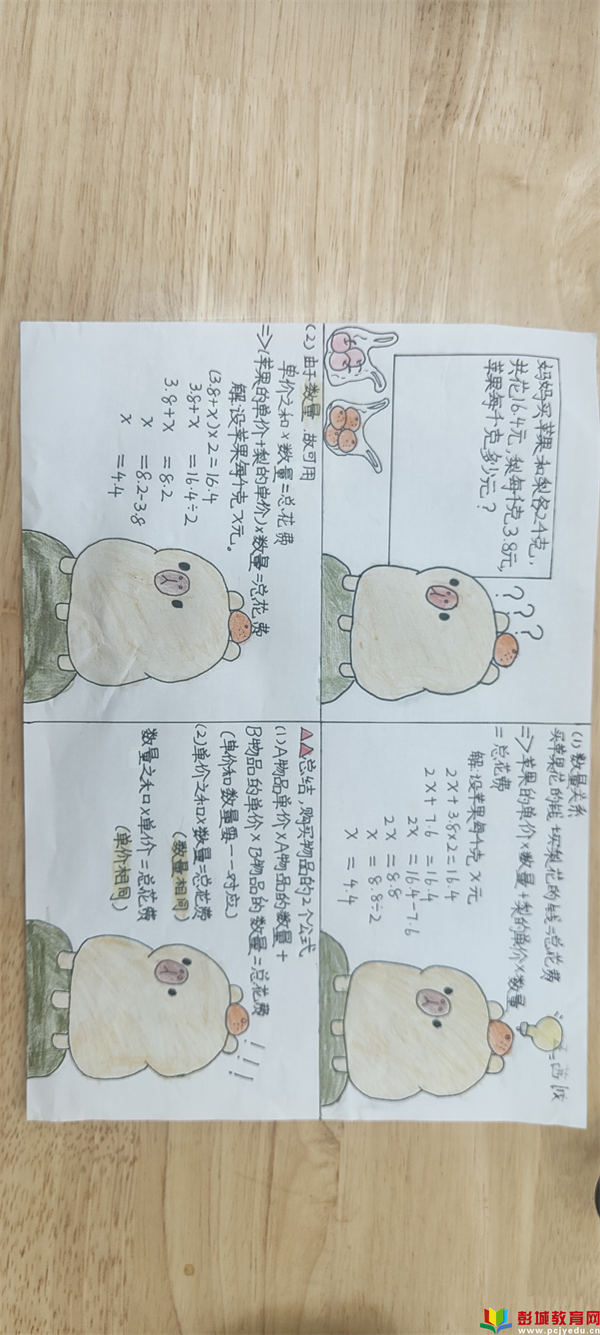 妈妈买苹果和梨各2千克,
共花16.4元,梨每千克3.8元,
苹果每千克多少元?
???
(1)数量关系
买苹果花的钱+买梨花的钱=总花费
=>苹果的单价×数量+梨的单价×数量
=总花费
解:设苹果每千克x元
2x+3.8×2=16.4
2x+7.6=16.4
2x=16.4-7.6
2x=8.8
x=8.8÷2
x=4.4
(2)由于数量 故可用
单价之和×数量=总花费
=>(苹果的单价+梨的单价)×数量=总花费
解:设苹果每千克x元。
(3.8+x)×2=16.4
3.8+x=16.4÷2
3.8+x=8.2
x=8.2-3.8
x=4.4
总结,购买物品的2个公式
(1)A物品单价×A物品的数量+
B物品的单价×B物品的数量=总花费
(单价和数量要一一对应)
(2)单价之和×数量=总花费
(数量相同)
数量之和×单价=总花费
(单价相同)
!!!
彭城教育网
www.pcjyedu.cn